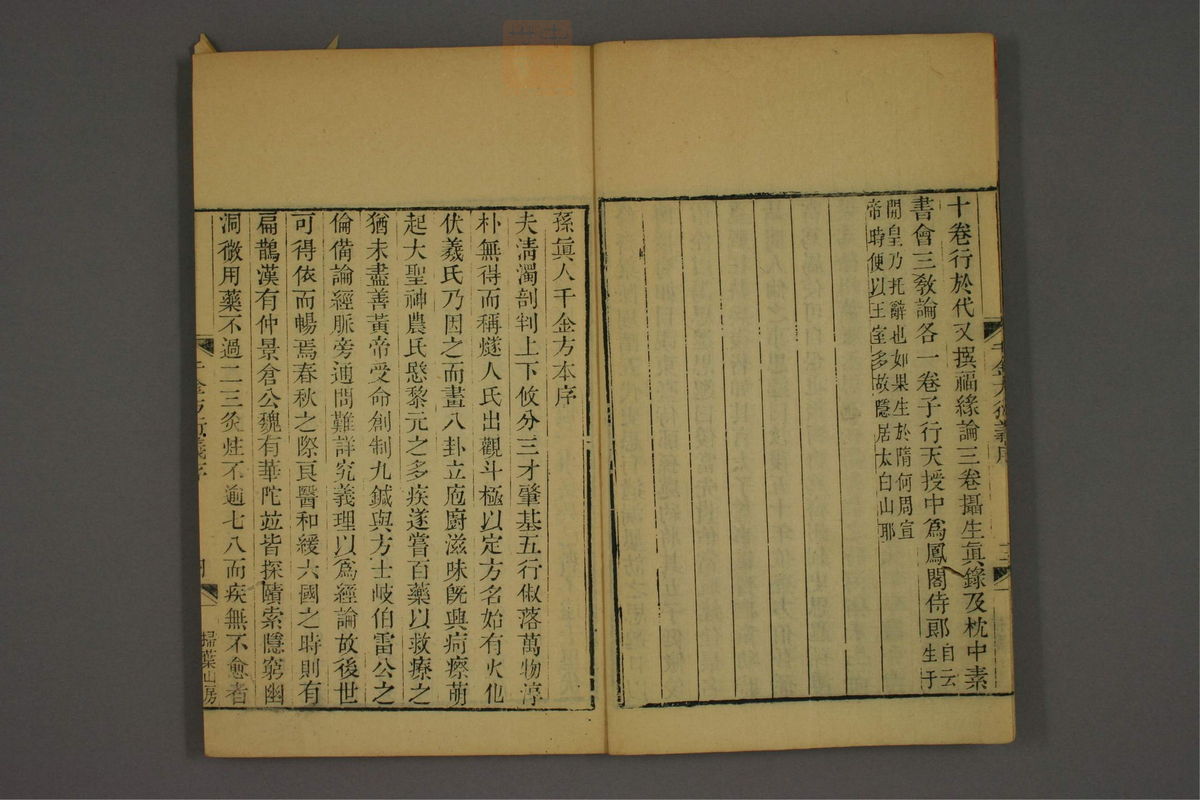 十卷行於代又撰福緣論三卷攝生眞錄及枕中素
書會三敎論各一卷子行天授中爲鳳閣侍郞自云生于
開皇乃托辭也如果生於隋何周宣
帝時便以王室多故隱居太白山耶
千金方衍義序
三
孫眞人千金方本序
夫淸濁剖判上下攸分三才肇基五行俶落萬物淳
朴無得而稱燧人氏出觀斗極以定方名始有火化
伏羲氏乃因之而畫八卦立庖廚滋味旣興疴瘵萌
起大聖神農氏愍黎元之多疾遂嘗百藥以救療之
猶未盡善黃帝受命創制九鍼與方士岐伯雷公之
倫備論經脈旁通問難詳究義理以爲經論故後世
可得依而暢焉春秋之際良醫和緩六國之時則有
扁鵲漢有仲景倉公魏有華陀竝皆探賾索隱窮幽
洞微用藥不過二三灸炷不逾七八而疾無不愈者
千金方衍義序
掃葉山房